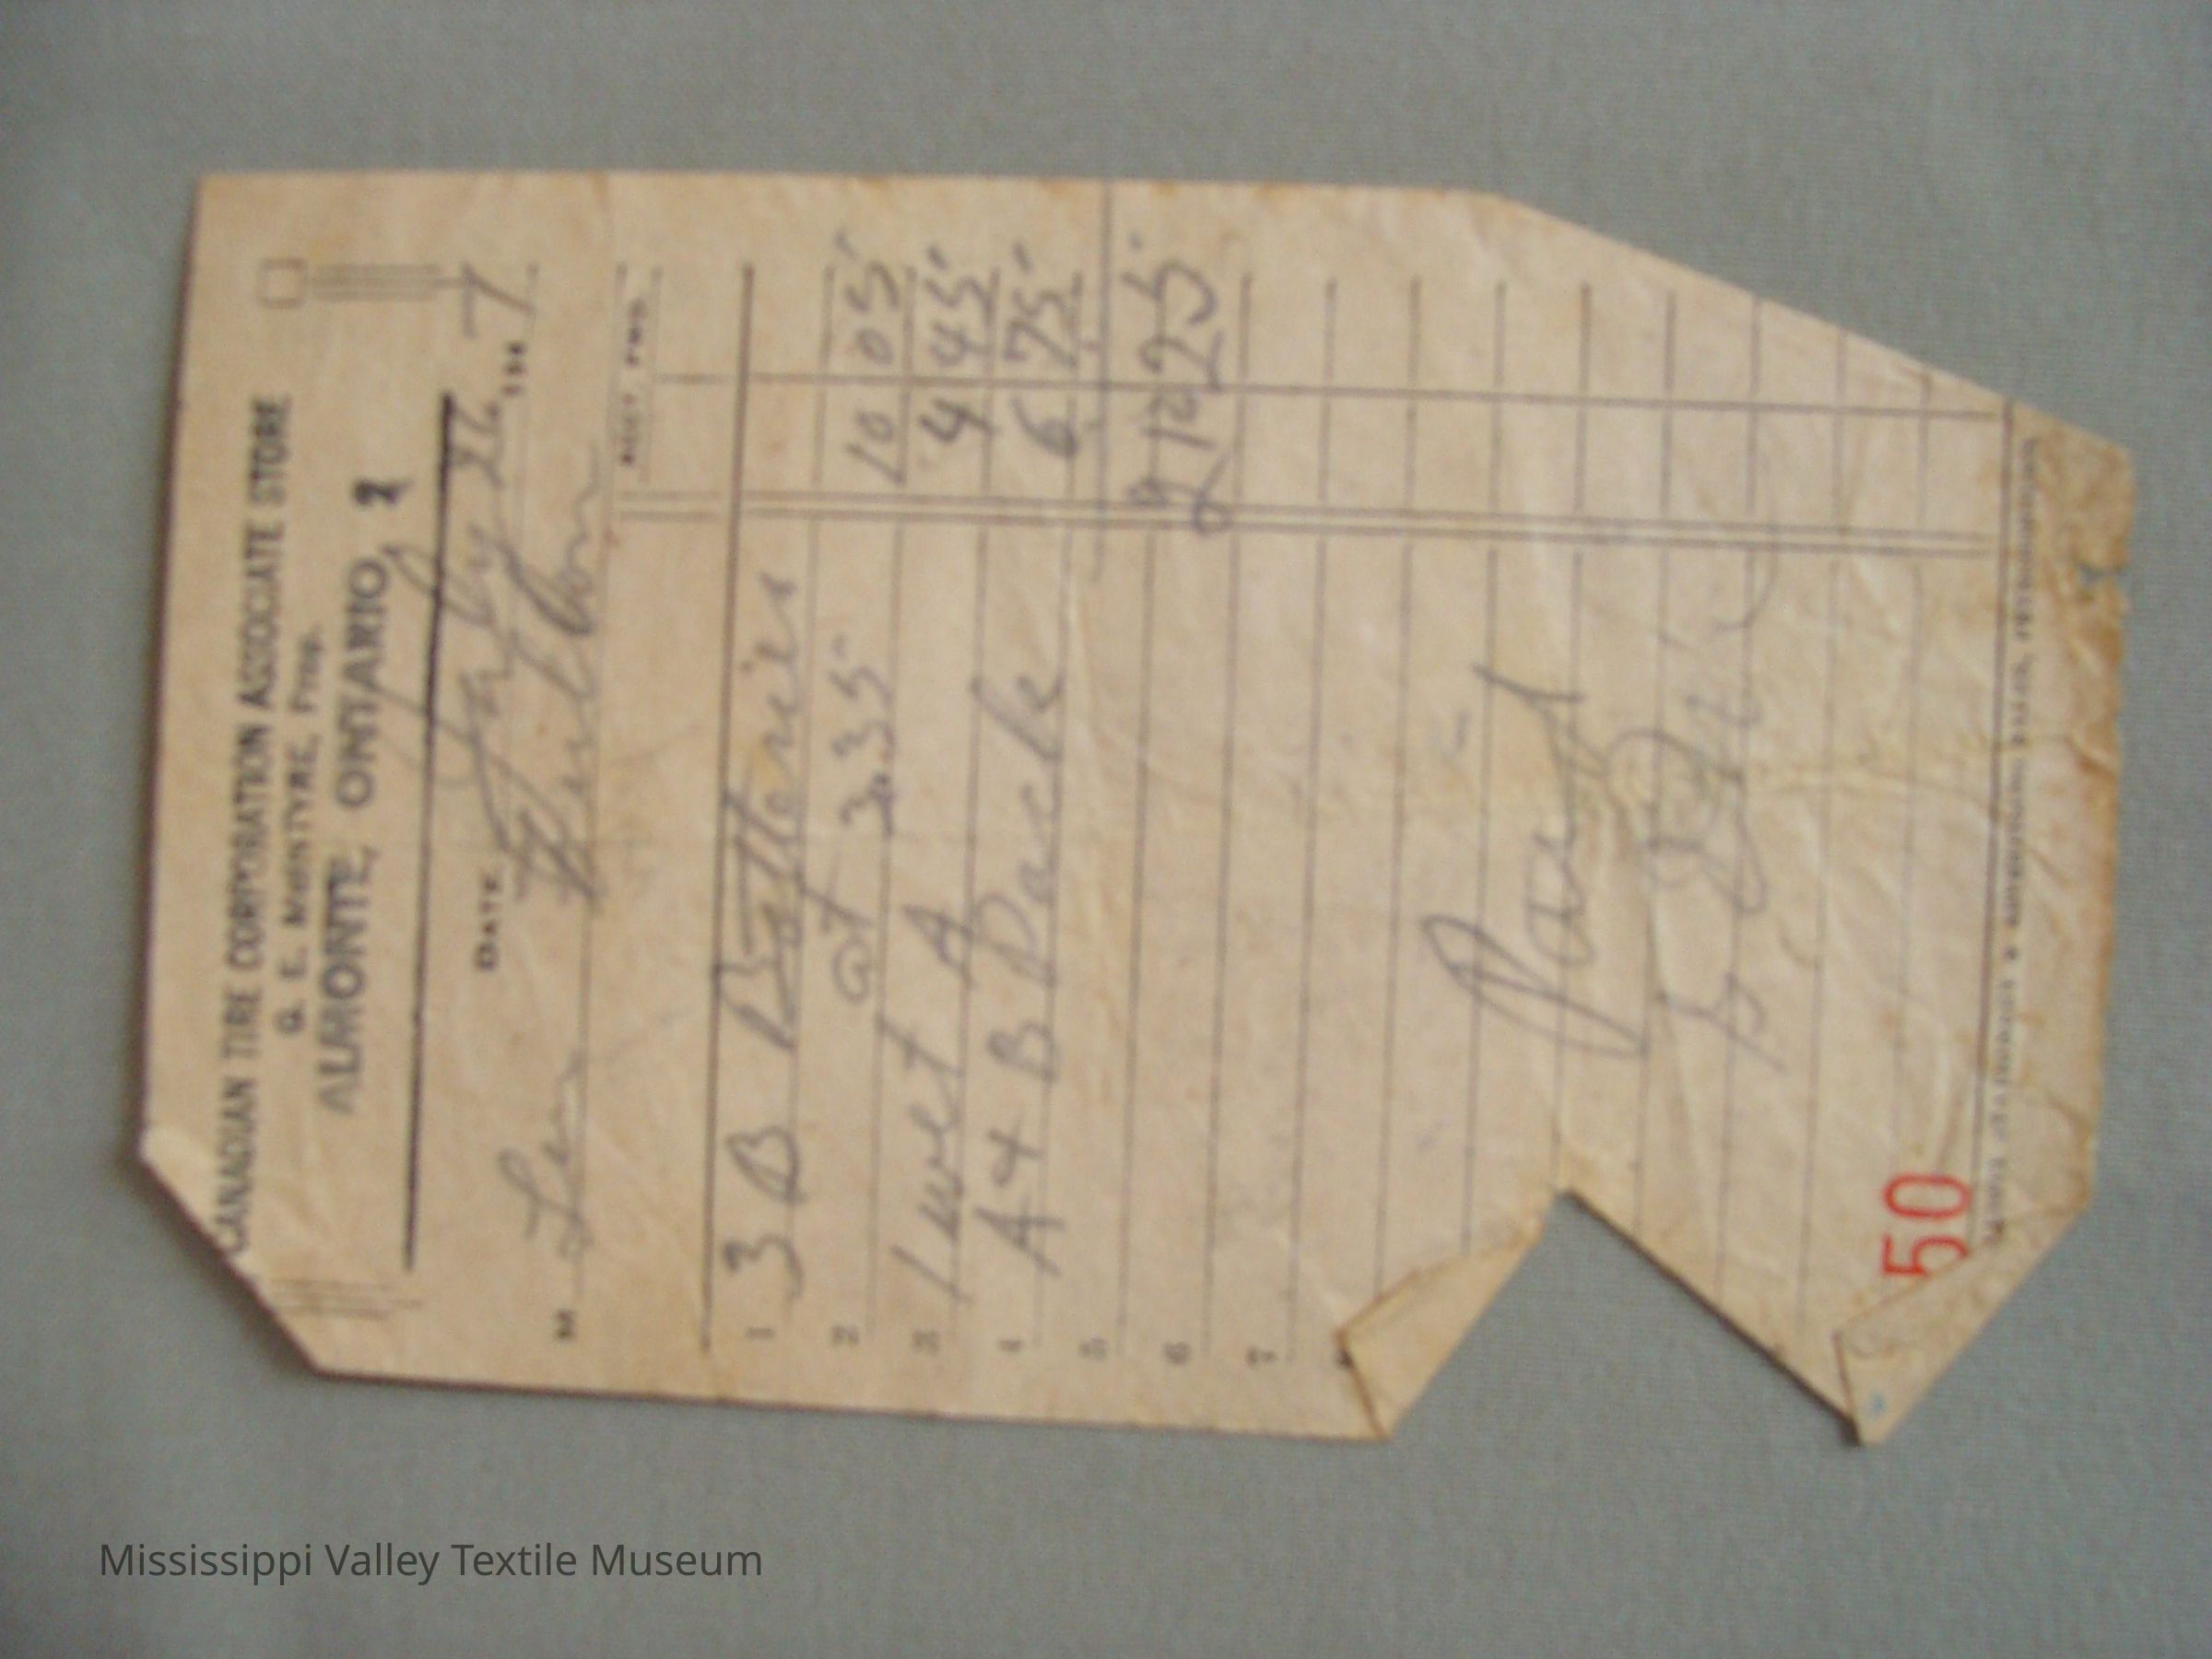 CANADIAN TIRE CORPORATION ASSOCIATE STORE
G. E. McINTYRE, Prop.
ALMONTE, ONTARIO
DATE July 26, 194 7
M Len
ACCT. FWD.
1 3 B Batteries
2 at 3.35 10 05
3 1 wet A 4 45
4 A + B Pack 6 75
5
6 21 25
7
8
Paid
50
Mississippi Valley Textile Museum